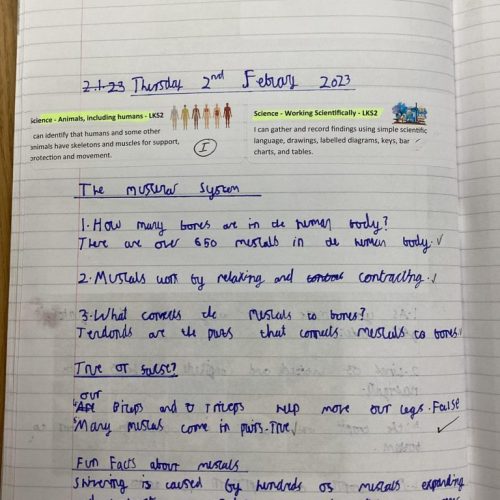 2.1.23 Thursday 2nd Febrary 2023
Science - Animals, including humans - LKS2
I can identify that humans and some other
animals have skeletons and muscles for support,
protection and movement.
I
Science - Working Scientifically - LKS2
I can gather and record findings using simple scientific
language, drawings, labelled diagrams, keys, bar
charts, and tables.
The System
1. How many bones are in the human body?
There are over 650 muscals in the human body.
2. Muscals work by relaxing and contracting.
3. What connects the muscals to bones?
Tendonds are the that connects muscals to bones.
True or false?
our
Biceps and Triceps help move our legs. False
Many muscals come in pairs. True
Fun Facts about muscals
Shivering is caused by hundreds of muscals expanding